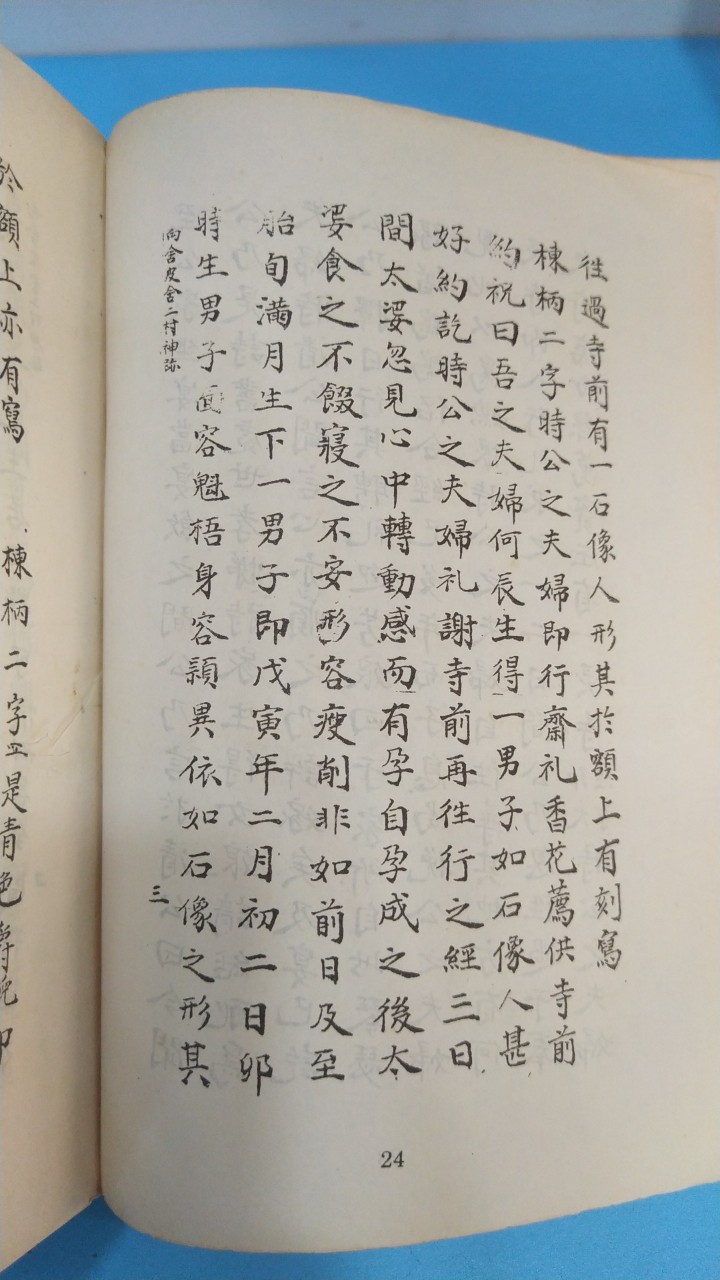 徃過寺前有一石像人形其於額上有刻寫
棟柄二字時公之夫婦即行齋礼香花薦供寺前
約祝曰吾之夫婦何辰生得一男子如石像人甚
好約訖時公之夫婦礼謝寺前再徃行之經三日
間太婆忽見心中轉動感而有孕自孕成之後太
婆食之不餟寢之不安形容瘦削非如前日及至
胎旬滿月生下一男子即戊寅年二月初二日卯
時生男子面容魁梧身容頴異依如石像之形其
向舍皮舍二村神跡
三
於額上亦有寫
棟柄二字
是青色
24